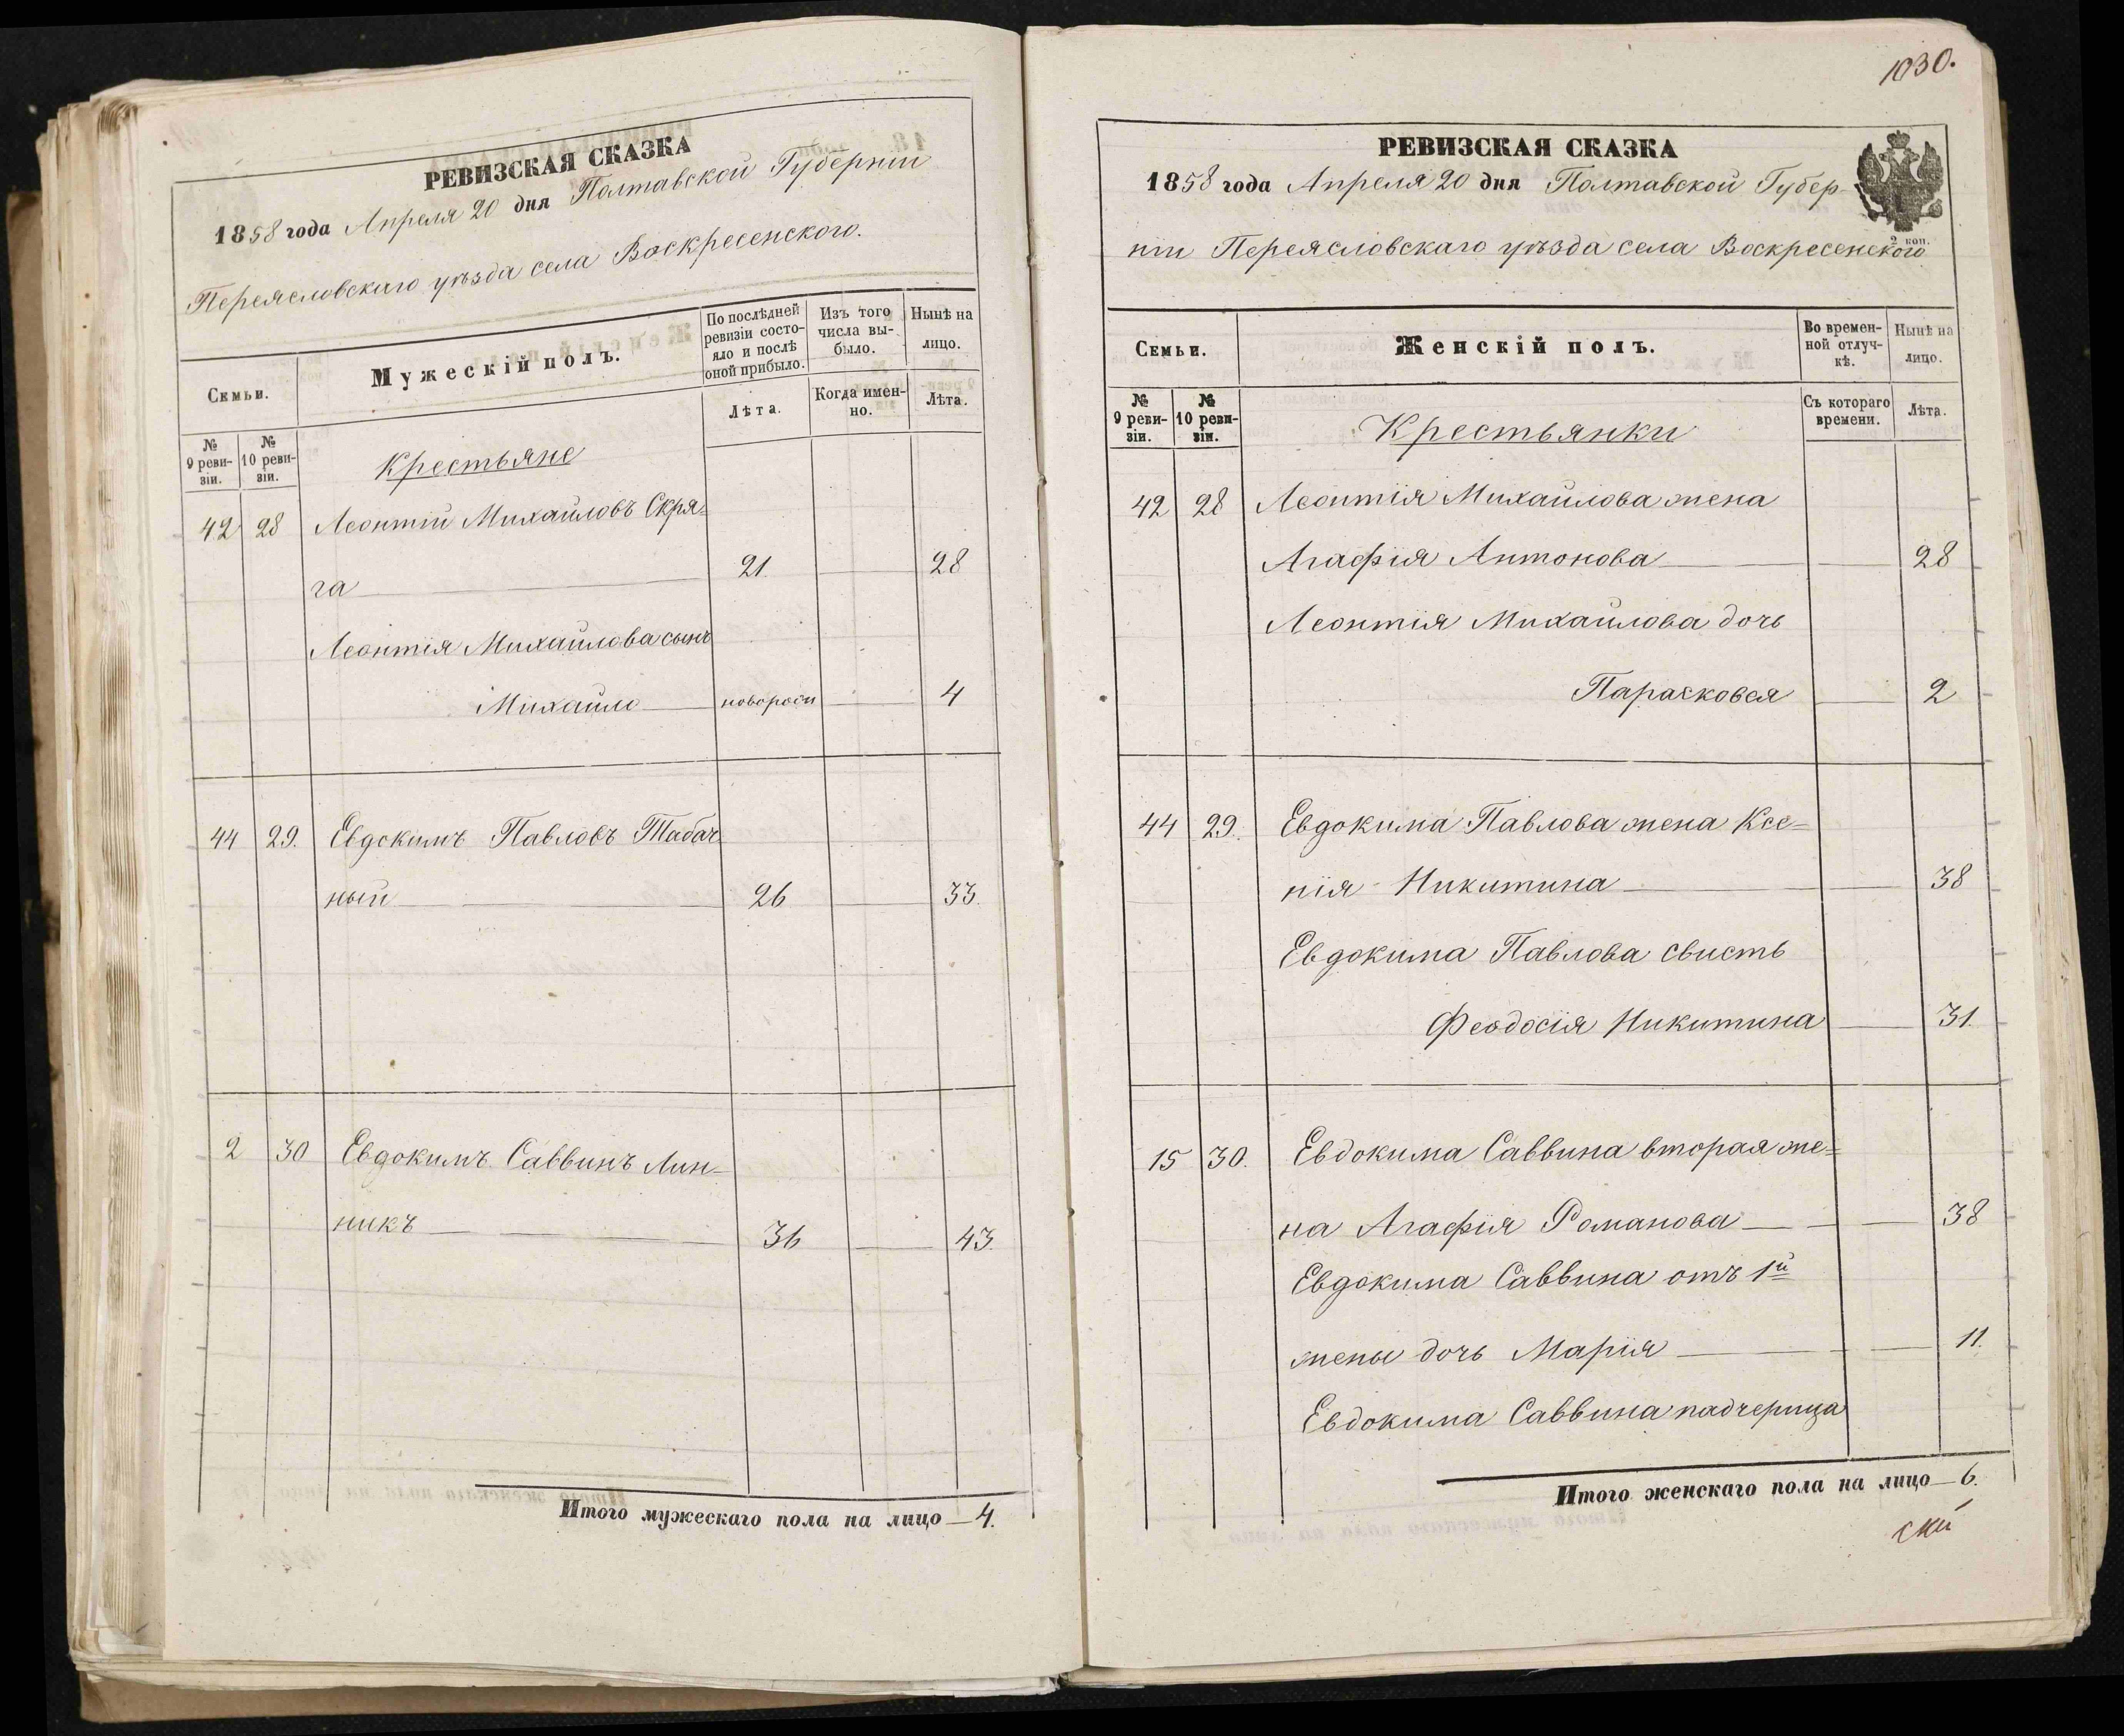 РЕВИЗСКАЯ СКАЗКА
1858 года Апреля 20 дня Полтавской Губерніи
Переясловскаго уѣзда села Воскресенского.
Семьи.
Мужескій полъ.
По послѣдней
ревизіи состо-
яло и послѣ
оной прибыло.
Изъ того
числа вы-
было.
Нынѣ на
лицо.
№
9 реви-
зіи.
№
10 реви-
зіи.
Лѣта.
Когда имен-
но.
Лѣта.
Крестьяне
42 28 Леонтій Михайловъ Скря-
га 21. 28
Леонтія Михайлова сынъ
Михайло 4
44 29. Евдокимъ Павловъ Табач-
ный 26 33.
2 30 Евдокимъ Саввинъ Лин-
никъ 36 43.
Итого мужескаго пола на лицо 4.
1030.
РЕВИЗСКАЯ СКАЗКА
1858 года Апреля 20 дня Полтавской Губер-
ніи Переясловскаго уѣзда села Воскресенского
2 коп.
Семьи.
Женскій полъ.
Во времен-
ной отлуч-
кѣ.
Нынѣ на
лицо.
№
9 реви-
зіи.
№
10 реви-
зіи.
Съ котораго
времени.
Лѣта.
Крестьянки
42 28 Леонтія Михайлова жена
Агафія Антонова 28
Леонтія Михайлова дочь
Парасковея 2
44 29. Евдокима Павлова жена Ксе=
нія Никитина 38
Евдокима Павлова свисть
Феодосія Никитина 31.
15 30. Евдокима Саввина вторая же=
на Агафія Романова 38
Евдокима Саввина отъ 1й
жены дочь Марія 11.
Евдокима Саввина падчерица
Итого женскаго пола на лицо 6.